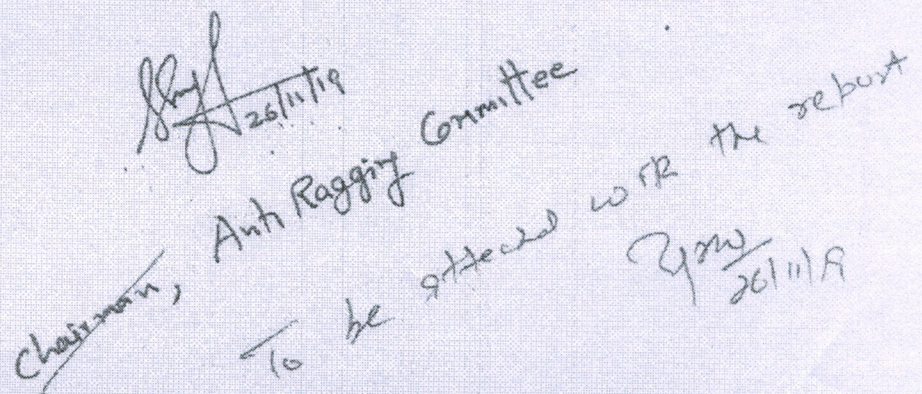 26/11/19
Chairman, Anti Ragging Committee
To be attached with the report
26/11/19